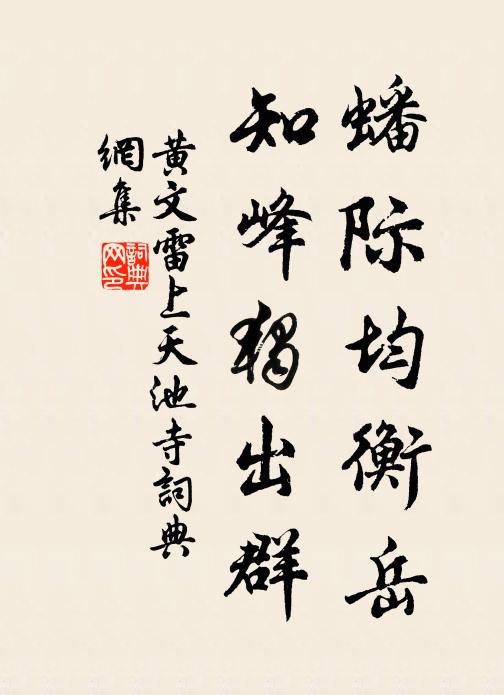 蟠际均衡岳
知峰独出群
黄文雷上天池寺詞典
網集
詞典网印